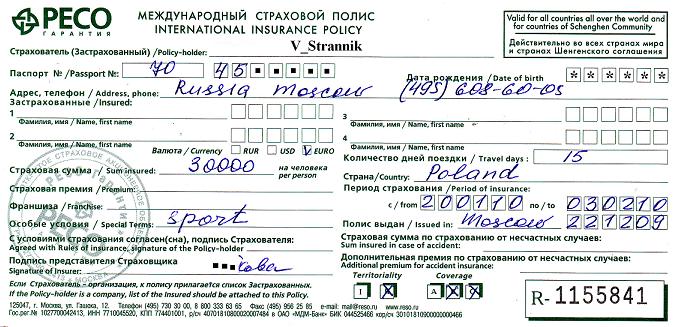 РЕСО
ГАРАНТИЯ
МЕЖДУНАРОДНЫЙ СТРАХОВОЙ ПОЛИС
INTERNATIONAL INSURANCE POLICY
Valid for all countries all over the world and
for countries of Schenghen Community
Действительно во всех странах мира
и странах Шенгенского соглашения
Страхователь (Застрахованный) /Policy-holder: V_Strannik
Паспорт № /Passport №: 70 45
Дата рождения / Date of birth * * * * * *
Адрес, телефон / Address, phone: Russia Moscow (495) 608-60-05
Застрахованные / Insured:
1
Фамилия, имя / Name, first name
3
Фамилия, имя / Name, first name
2
Фамилия, имя / Name, first name
4
Фамилия, имя / Name, first name
Валюта / Currency RUR USD V EURO
Количество дней поездки / Travel days: 15
Страховая сумма / Sum insured: 30000 на человека
per person
Страна/Country: Poland
Страховая премия / Premium:
Период страхования / Period of insurance:
с / from 200110 по / to 030210
Франшиза / Franchise:
Особые условия / Special Terms: sport
Полис выдан / Issued in: Moscow 221209
С условиями страхования согласен(сна), подпись Страхователя:
Agreed with Rules of insurance, signature of the Policy-holder:
Страховая сумма по страхованию от несчастных случаев:
Sum insured in case of accident:
Подпись представителя Страховщика
Signature of Insurer:
Дополнительная премия по страхованию от несчастных случаев:
Additional premium for accident insurance:
Territoriality Coverage
I A
Если Страхователь - организация, к полису прилагается список Застрахованных.
If the Policy-holder is a company, list of the Insured should be attached to this Policy.
R- 1155841
125047, г. Москва, ул. Гашека, 12. Телефоны (495) 730 30 00, 8 800 333 63 65 Факс: (495) 956 25 85 e-mail: mail@reso.ru www.reso.ru
РЕСО
МОСКВА